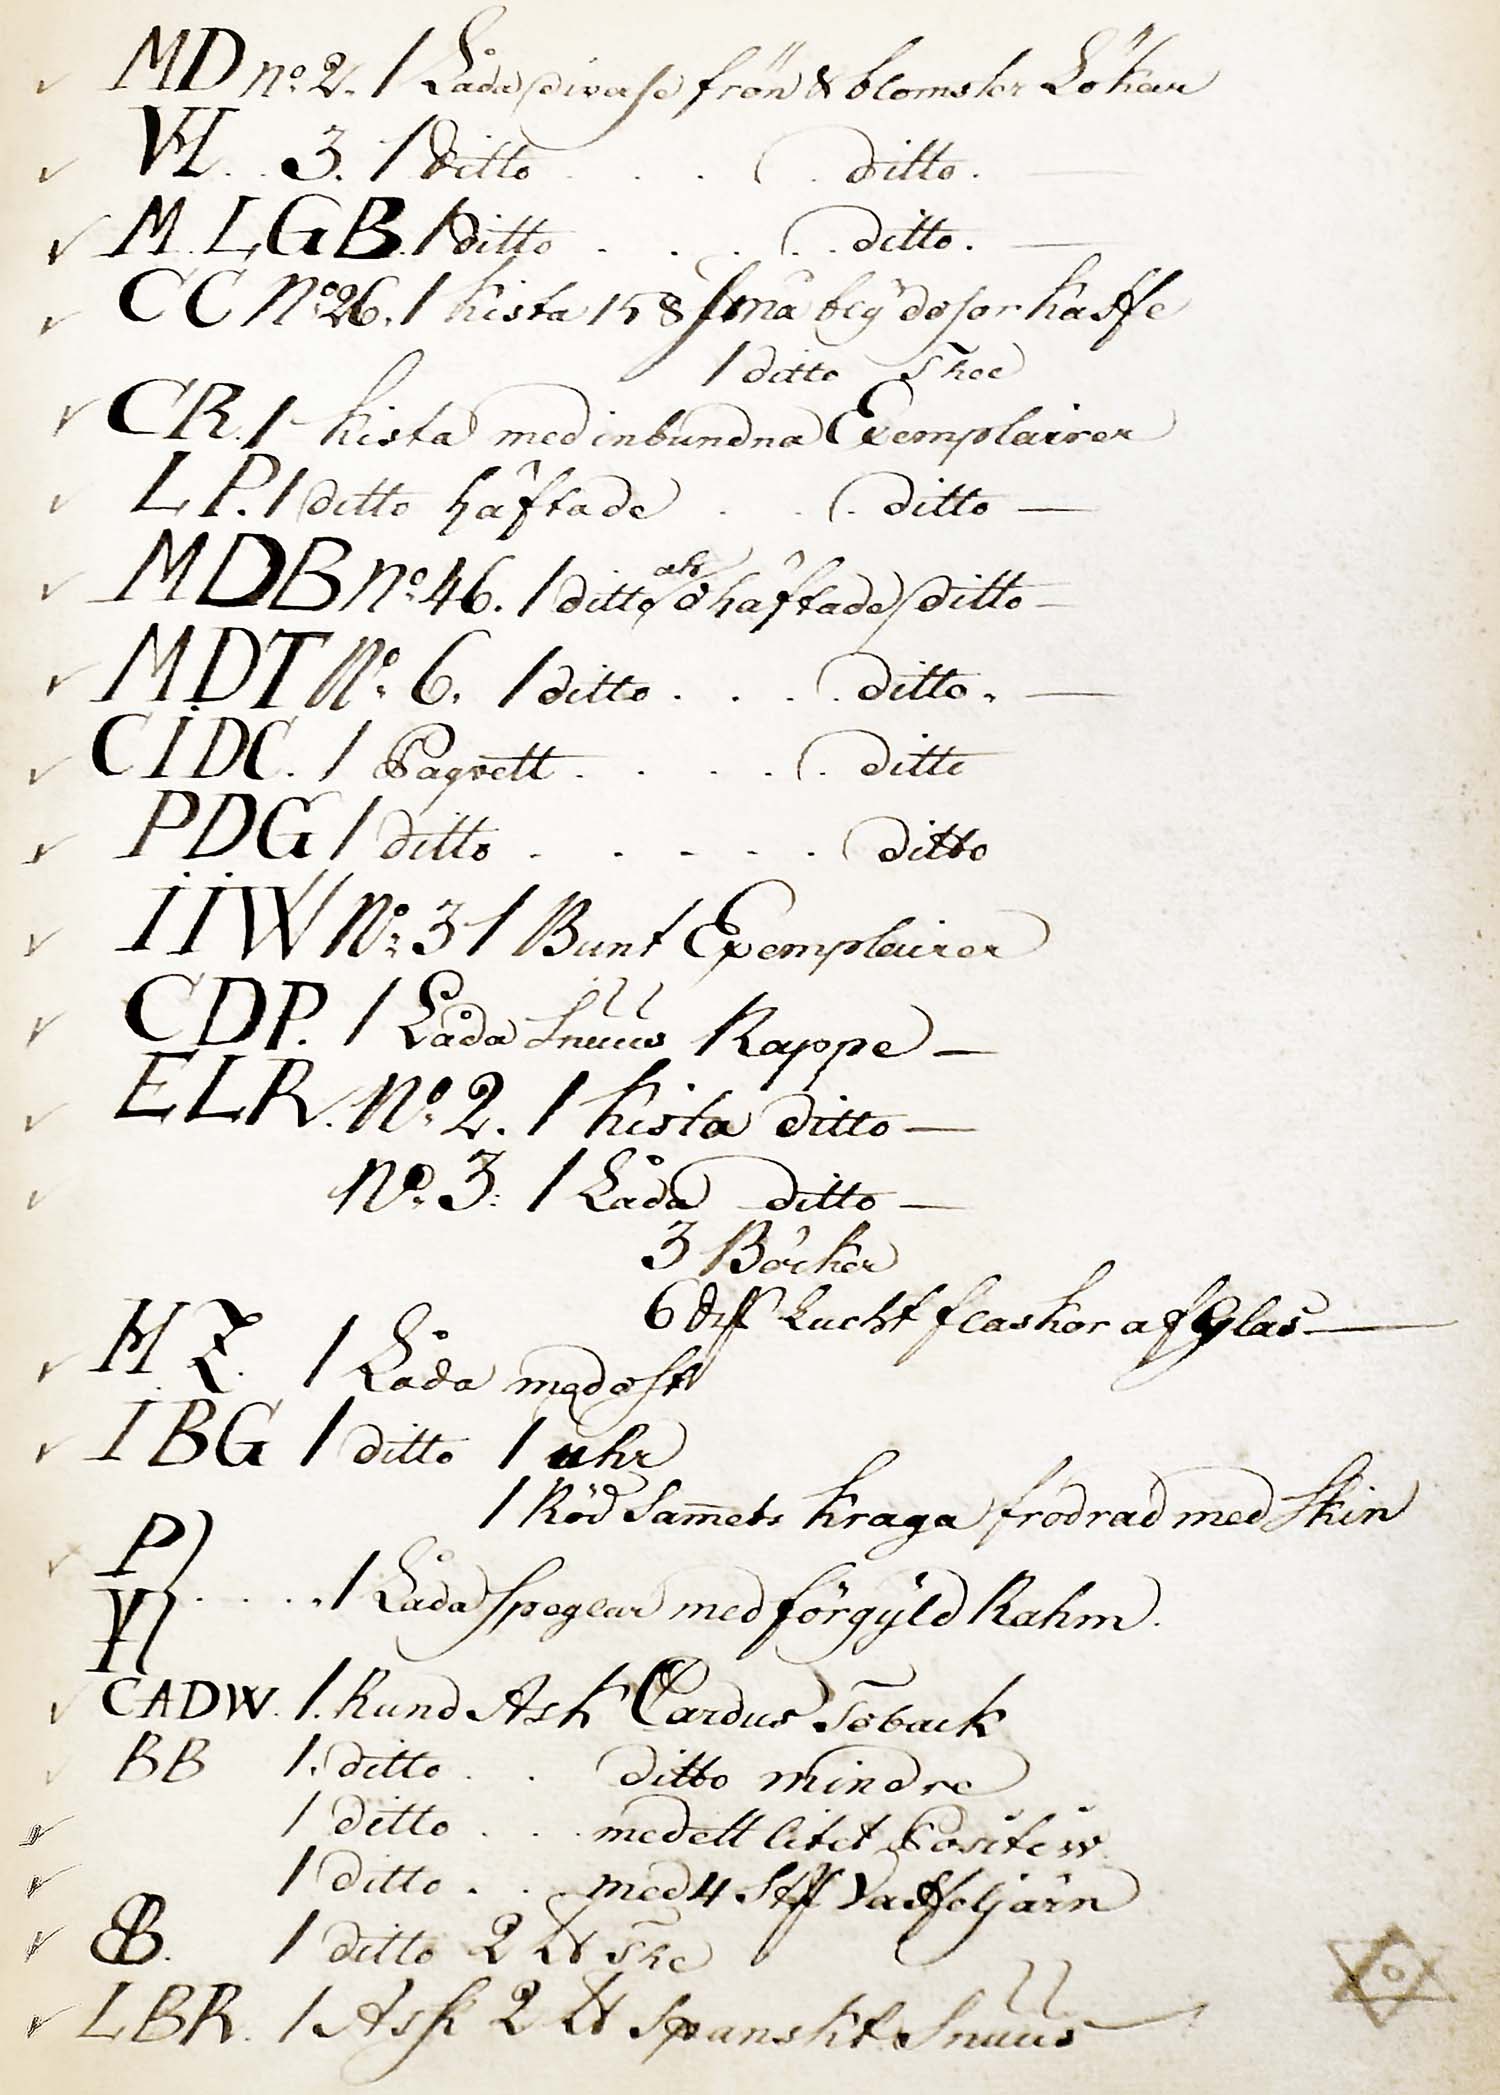 MD nº 2. 1 Låda diverse frön & blomster Lökar
VH . . 3. 1 ditto . . . . ditto. —
M. LGB. 1 ditto . . . . . ditto. —
CC Nº 26. 1 kista 158 små bly dosor kaffe
1 ditto Thee
CR. 1 kista med inbundna Exemplairer
LP. 1 ditto häftade . . . ditto —
MDB Nº 46. 1 ditto oh häftade ditto —
MDT Nº 6. 1 ditto . . . . ditto. —
CIDC. 1 Paqvett . . . . . ditto
PDG 1 ditto . . . . . ditto
IIW Nº 3 1 Bunt Exemplairer
CDP. 1 Låda Snuus Rappe —
ELR. Nº 2. 1 kista ditto —
Nº 3: 1 Låda ditto —
3 Böcker
6 diff Lucht flaskor af Glas —
HZ. 1 Låda med ost
IBG 1 ditto 1 uhr
1 Röd Sam̅ets kraga frodrad med Skin
P
VH . . . . . 1 Låda Speglar med förgyld Rahm.
CADW. 1. Rund Ask Cardus Toback
BB 1. ditto . . ditto mindre
1 ditto . . . med ett litet Positiw
1 ditto . . med 4 Stff Vaffeljärn
BB. 1 ditto 2 ℔ The
LBR. 1 Ask 2 ℔ Spanskt Snuus —